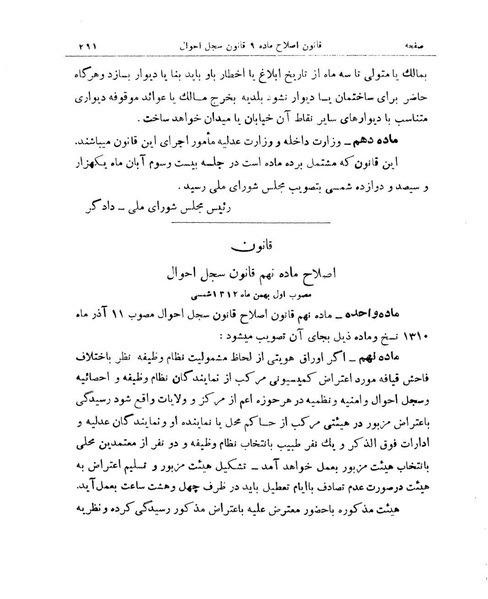 صفحه قانون اصلاح ماده ۹ قانون سجل احوال ۲۹۱
بمالك یا متولی تا سه ماه از تاریخ ابلاغ یا اخطار باو باید بنا یا دیوار بسازد وهرگاه
حاضر برای ساختمان یا دیوار نشود بلدیه بخرج مالك یا عوائد موقوفه دیواری
متناسب با دیوارهای سایر نقاط آن خیابان یا میدان خواهد ساخت.
ماده دهم ـ وزارت داخله و وزارت عدلیه مأمور اجرای این قانون میباشند.
این قانون که مشتمل برده ماده است در جلسه بیست وسوم آبان ماه یکهزار
و سیصد و دوازده شمسی بتصویب مجلس شورای ملی رسید.
رئیس مجلس شورای ملی ـ دادگر
قانون
اصلاح ماده نهم قانون سجل احوال
مصوب اول بهمن ماه ۱۳۱۲ شمسی
ماده واحده ـ ماده نهم قانون اصلاح قانون سجل احوال مصوب ۱۱ آذر ماه
۱۳۱۰ نسخ وماده ذیل بجای آن تصویب میشود:
ماده نهم ـ اگر اوراق هویتی از لحاظ مشمولیت نظام وظیفه نظر باختلاف
فاحش قیافه مورد اعتراض کمیسیونی مرکب از نمایندگان نظام وظیفه و احصائیه
وسجل احوال وامنیه ونظمیه در هرحوزه اعم از مرکز و ولایات واقع شود رسیدگی
باعتراض مزبور در هیئتی مرکب از حاکم محل یا نماینده او ونمایندگان عدلیه و
ادارات فوق الذکر و یك نفر طبیب بانتخاب نظام وظیفه و دو نفر از معتمدین محلی
بانتخاب هیئت مزبور بعمل خواهد آمد ـ تشکیل هیئت مزبور و تسلیم اعتراض به
هیئت درصورت عدم تصادف باایام تعطیل باید در ظرف چهل وهشت ساعت بعمل آید.
هیئت مذکوره باحضور معترض علیه باعتراض مذکور رسیدگی کرده ونظریه